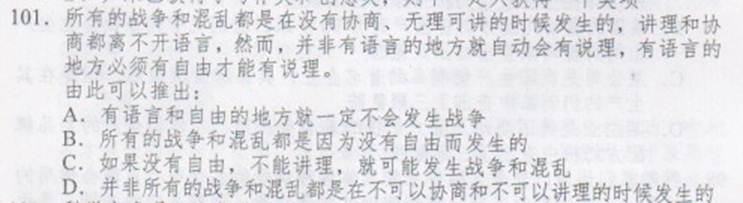 101. 所有的战争和混乱都是在没有协商、无理可讲的时候发生的，讲理和协
商都离不开语言，然而，并非有语言的地方就自动会有说理，有语言的
地方必须有自由才能有说理。
由此可以推出：
A. 有语言和自由的地方就一定不会发生战争
B. 所有的战争和混乱都是因为没有自由而发生的
C. 如果没有自由，不能讲理，就可能发生战争和混乱
D. 并非所有的战争和混乱都是在不可以协商和不可以讲理的时候发生的